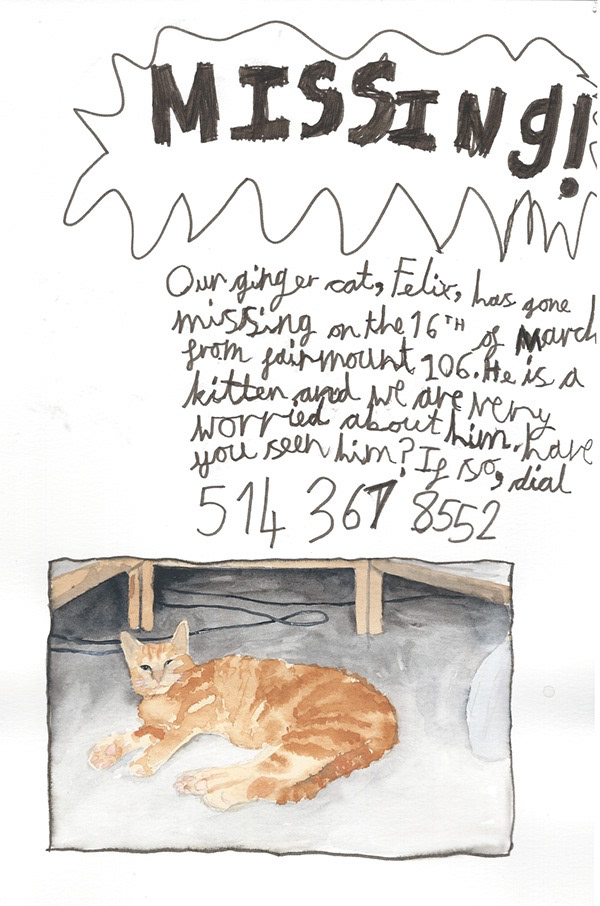 MISSINg!
Our ginger cat, Felix, has gone
missing on the 16TH of March
from fairmount 106. He is a
kitten and we are very
worried about him. have
you seen him? If so, dial
514 367 8552